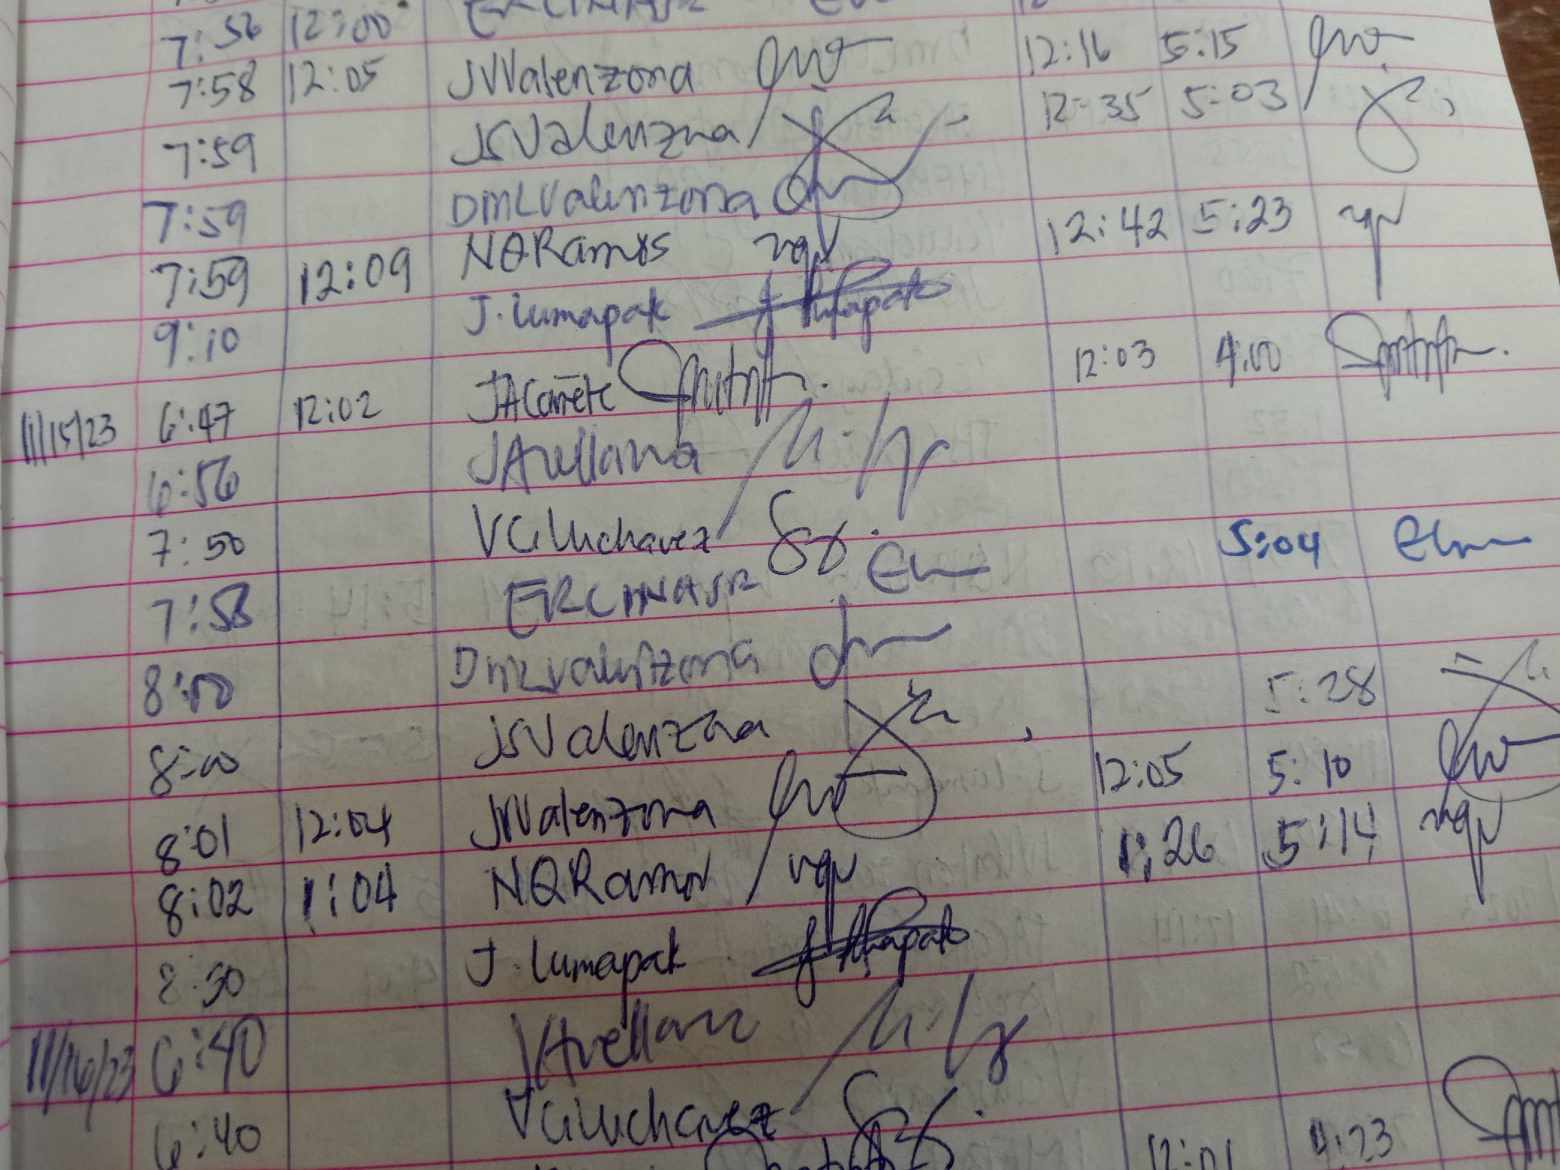 7:56 12:00 ERCINASJR
7:58 12:05 JVValenzona 12:16 5:15
7:59 JSValenzona 12:35 5:03
7:59 DMLValenzona
7:59 12:09 NQRamos nqr 12:42 5:23 nqr
9:10 J. Lumapak
11/15/23 6:47 12:02 JACañete 12:03 4:00
6:56 JAvellana
7:50 VGVuchavez
7:58 ERCINASJR 5:04
8:00 DMLValenzona
8:00 JSValenzona 5:28
8:01 12:04 JVValenzona 12:05 5:10
8:02 1:04 NQRamos nqr 1:26 5:14 nqr
8:30 J. Lumapak
11/16/23 6:40 JAvellana
6:40
12:01 4:23